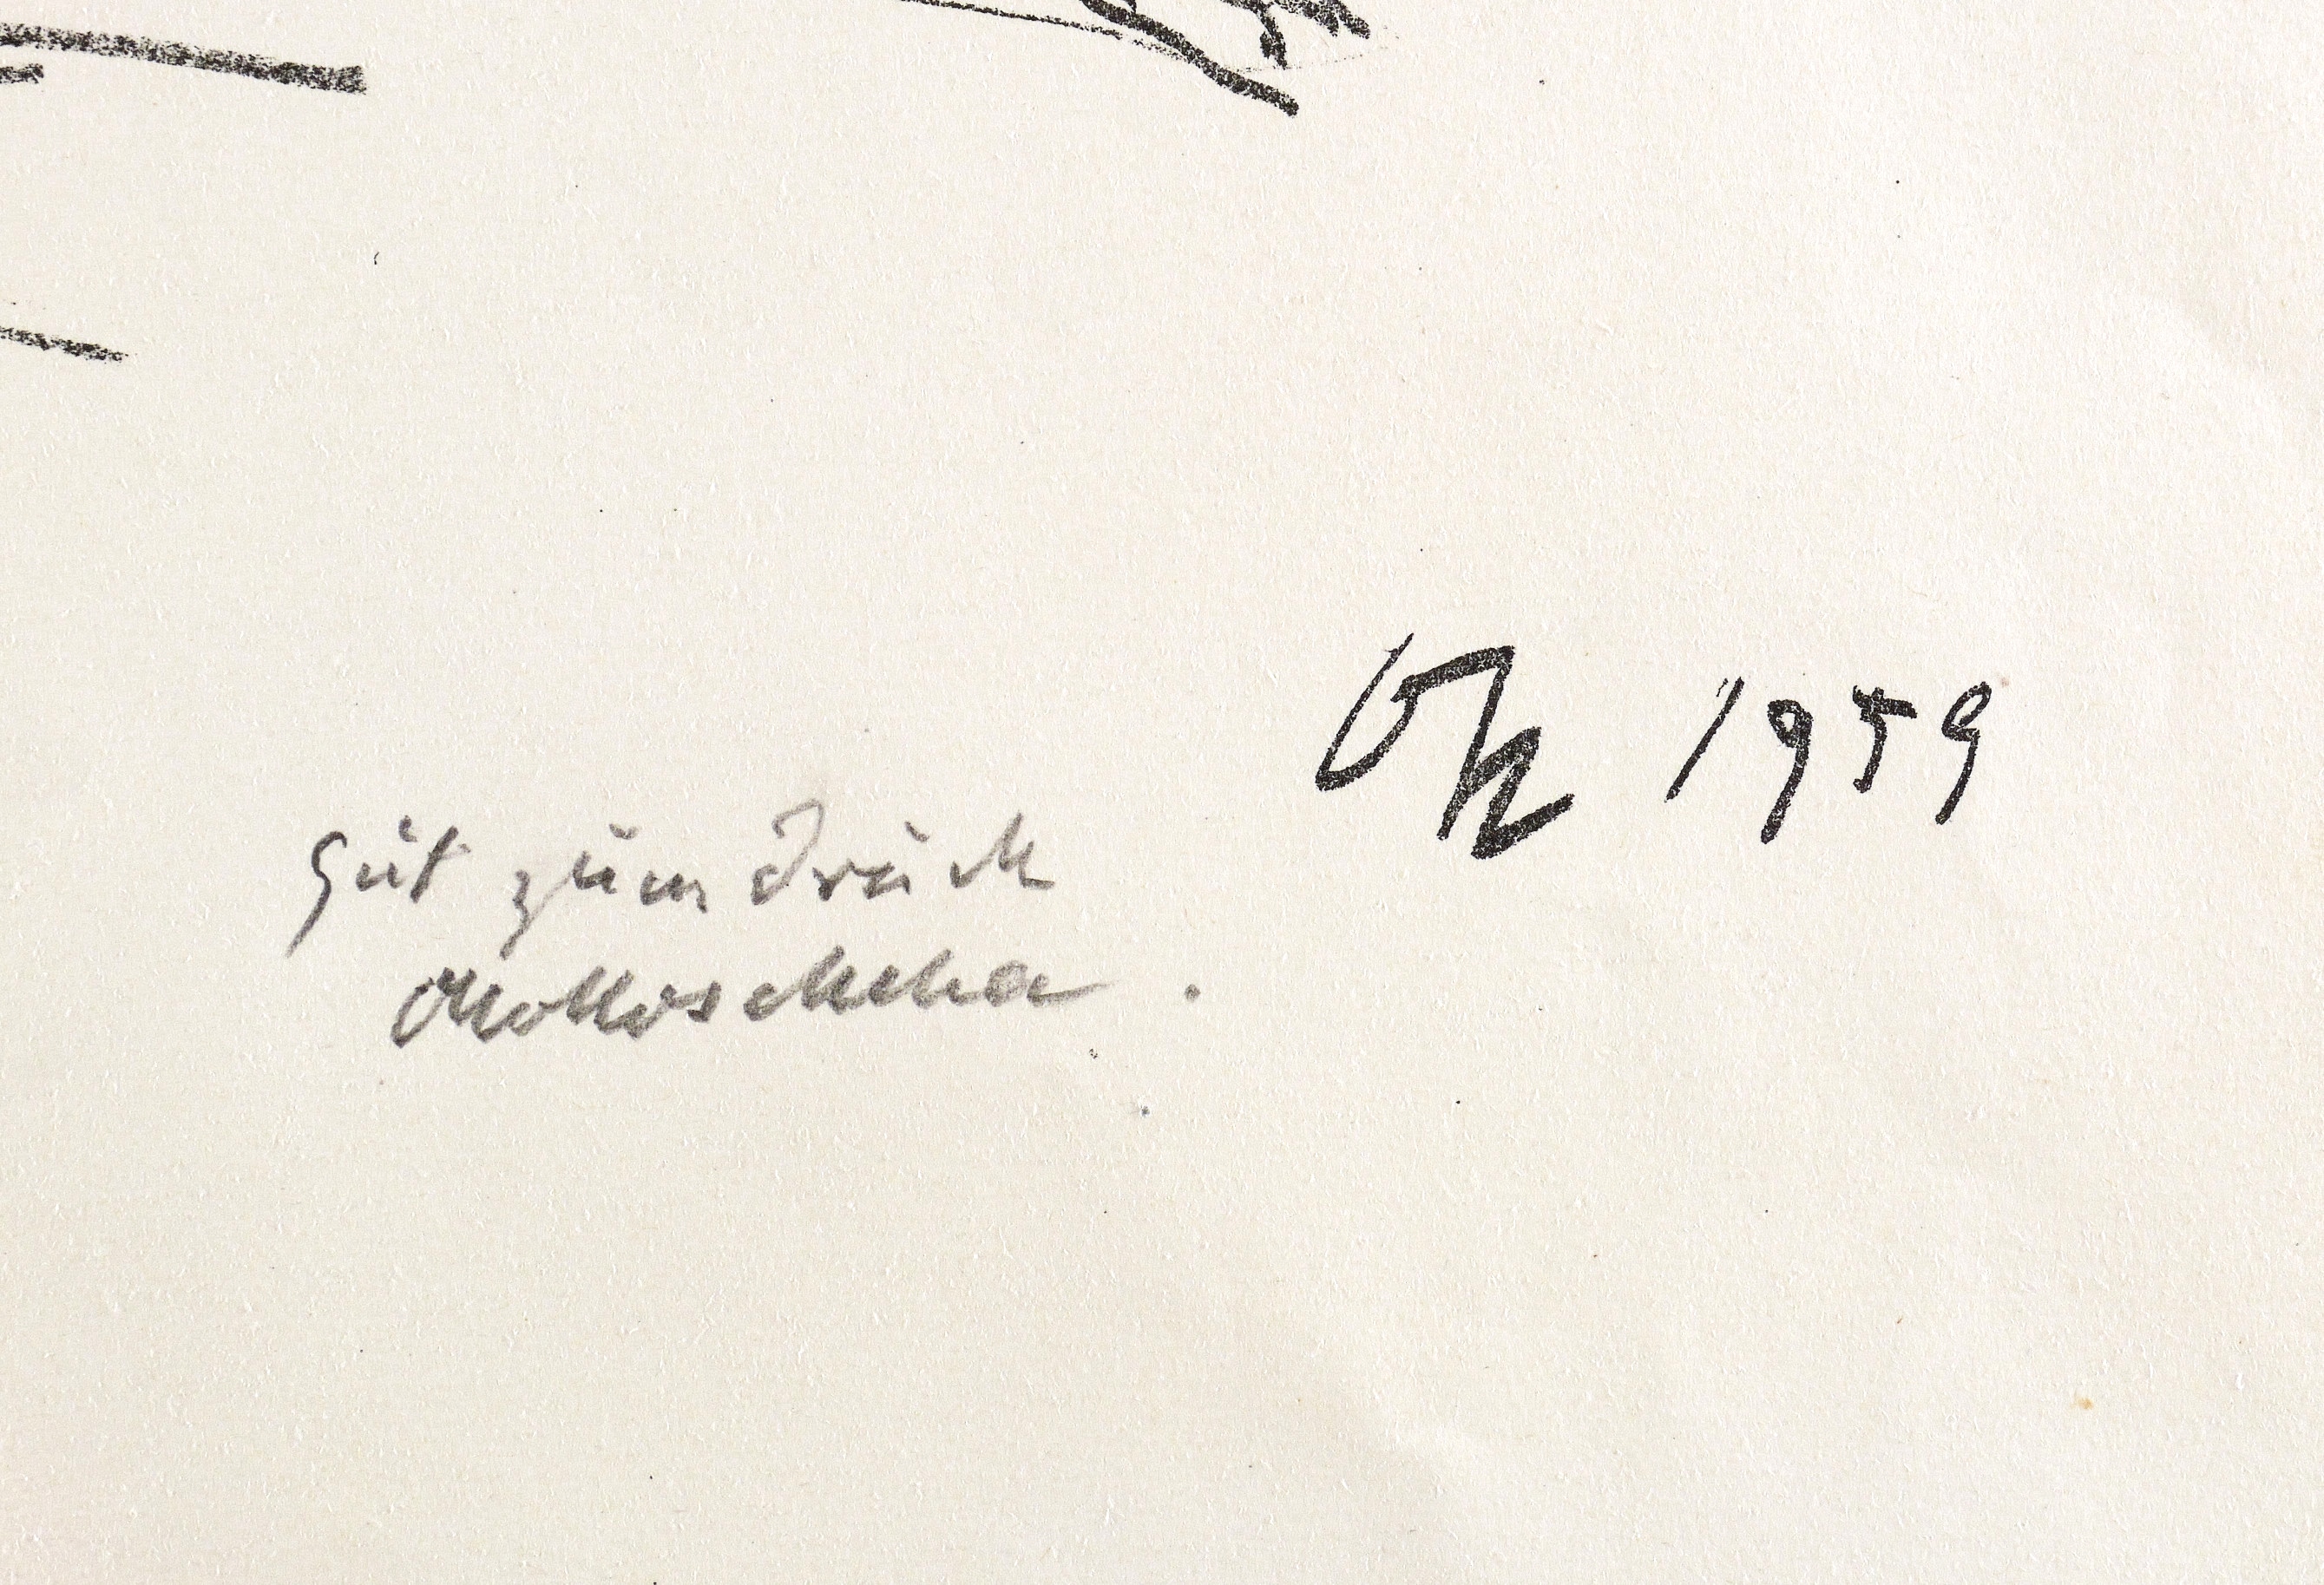 OK 1959
Gut zum Druck
OKokoschka